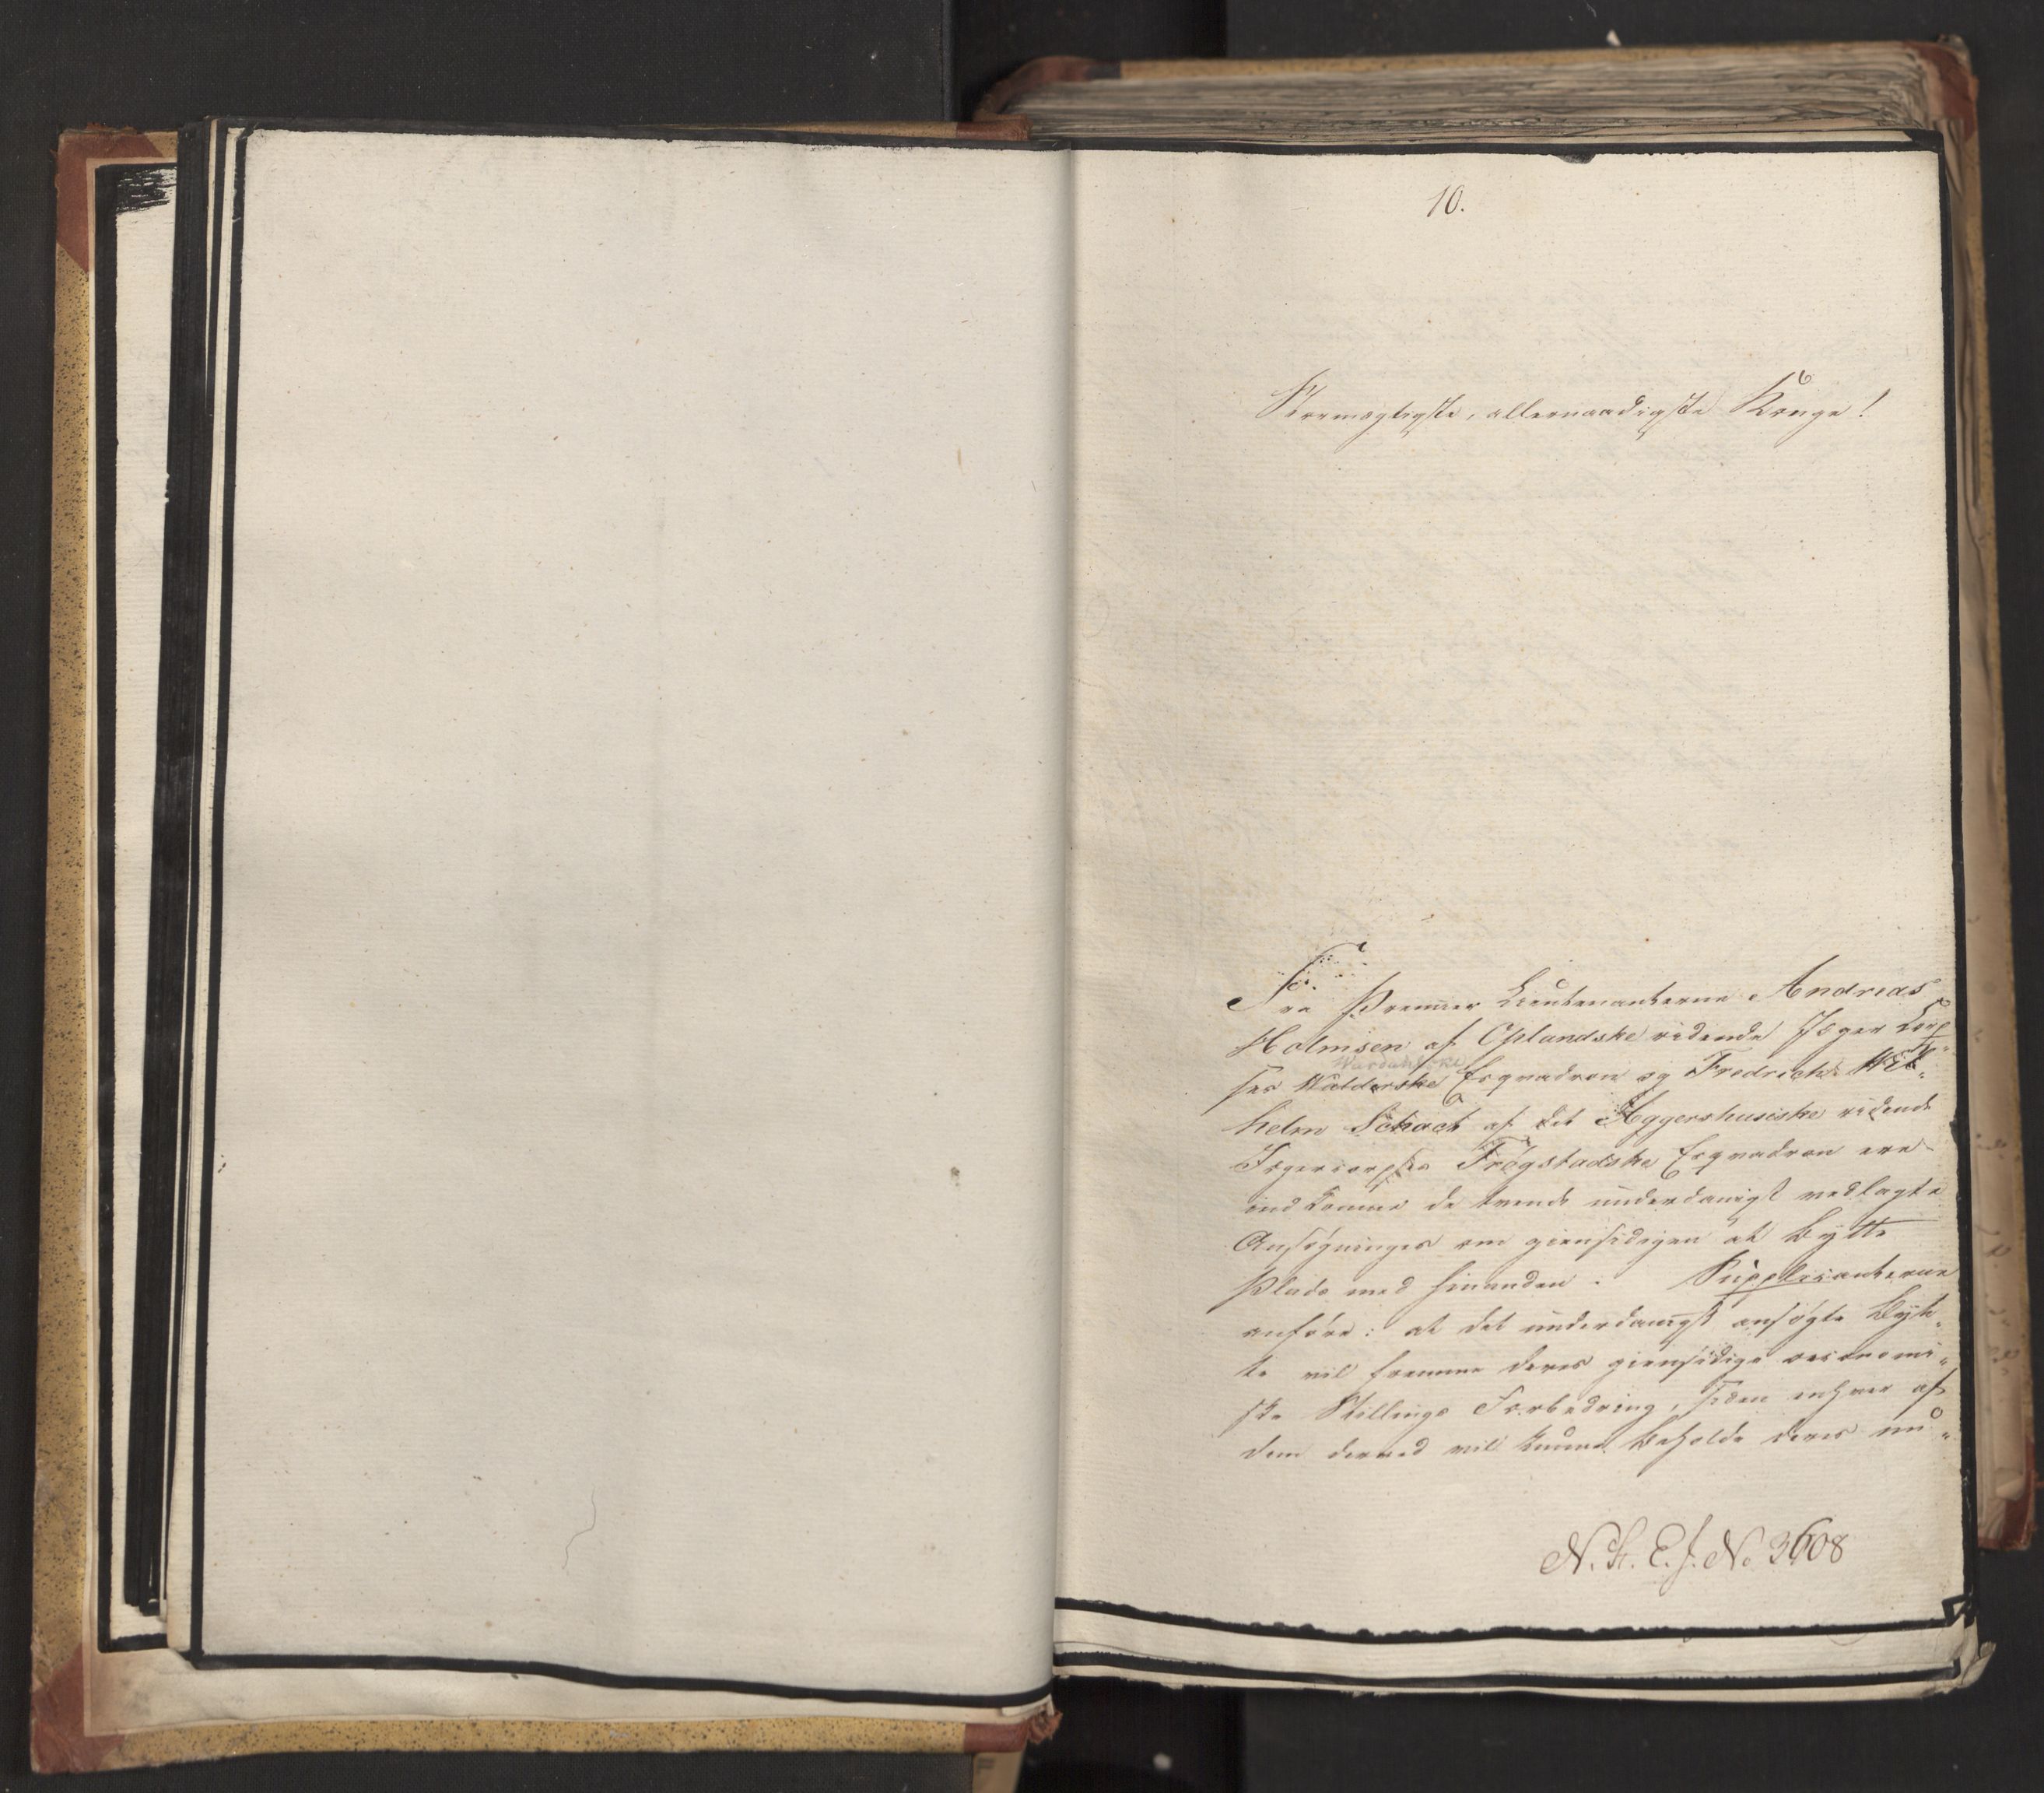 10.
Stormægtigste, allernaadigste Konge!
Fra Premier Lieutenanterne Andreas
Holmsen af Oplandske ridende Jæger Corp„
ses Waldersske Esqvadron og Fredrich Wil„
helm Schact af det Aggershusiske ridende
Jægercorpses Trøgstadske Esqvadron ere
indkomne de tvende underdanigst vedlagte
Ansøgninger om giensidigen at bytte
Plads med hinanden. Supplicanterne
anføre: at det underdanigst ansøgte Byt„
te vil fremme deres giensidige oeconomi„
ske Stillings Forbedring, siden enhver af
dem derved vil kunne beholde deres nu„
N. H. E. J. No 3608